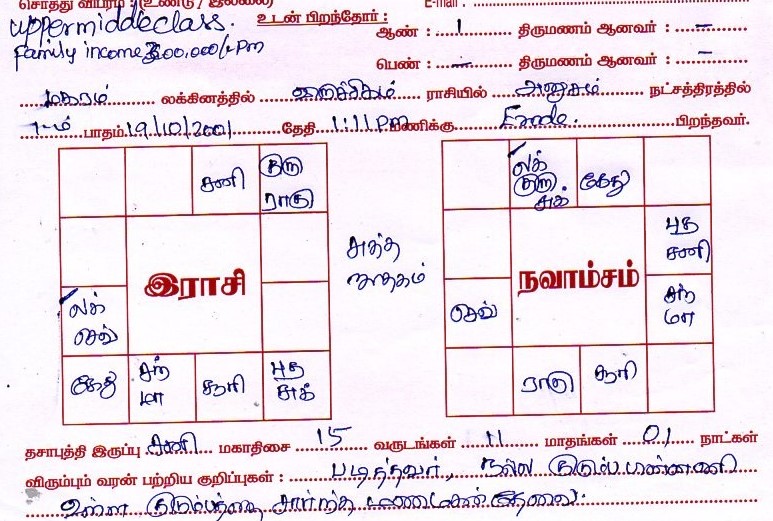 சொத்து விபரம் : (உண்டு / இல்லை) E-mail :
uppermiddleclass.
உடன் பிறந்தோர் :
family income 300,000/-pm
ஆண் : 1 திருமணம் ஆனவர் : –
பெண் : – திருமணம் ஆனவர் : –
மகரம் லக்கினத்தில் விருச்சிகம் ராசியில் அனுசம் நட்சத்திரத்தில்
1-ம் பாதம் 19/10/2001 தேதி 1:11 pm மணிக்கு Erode. பிறந்தவர்.
சனி குரு ராகு
லக் செவ்
கேது சந் மா சூரி புத சுக்
இராசி
சுத்த ஜாதகம்
லக் குரு சுக் கேது
புத சனி
செவ் சந் மா
ராகு சூரி
நவாம்சம்
தசாபுத்தி இருப்பு சனி மகாதிசை 15 வருடங்கள் 11 மாதங்கள் 01 நாட்கள்
விரும்பும் வரன் பற்றிய குறிப்புகள் : படித்தவர், நல்ல குடும்ப பண்ணணி
உள்ள குடும்பத்தை சார்ந்த மணமகன் தேவை.